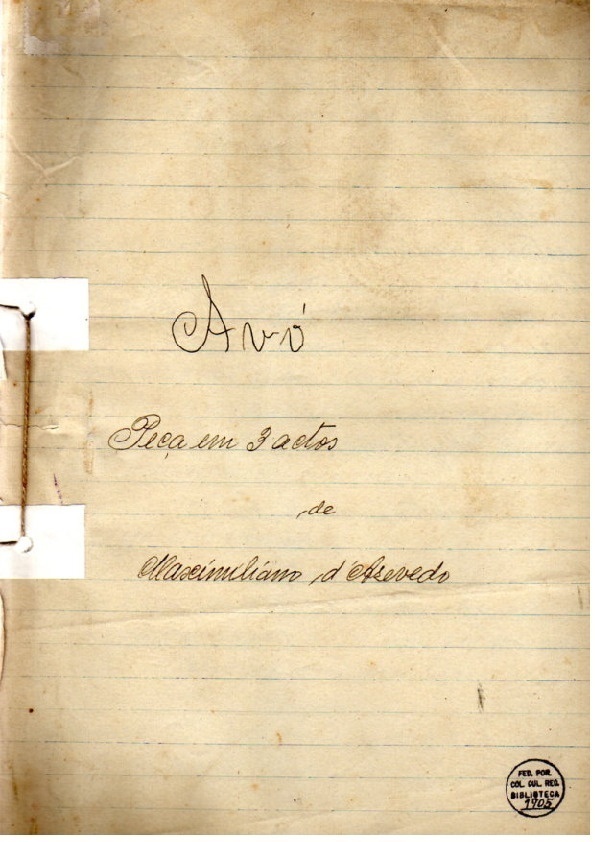 Avó
Peça em 3 actos
de
Maximiliano d'Azevedo
FED. POR.
COL. CUL. REC.
BIBLIOTECA
1905